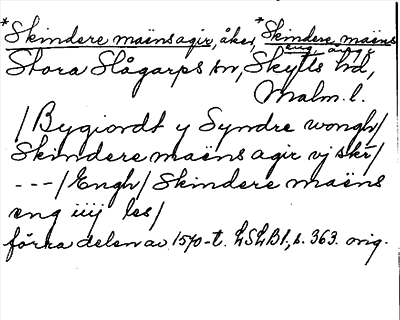 *Skindere maëns agir, åker, *Skindere maëns
eng, äng,
Stora Slågarps sn, Skytts hd,
Malm. l.
/Bygiordt y Syndre wongh/
Skindere maëns agir vj skr/
---/Engh/ Skindere maëns
eng iiij les/
förra delen av 1570-t. LSLB1, s. 363. orig.